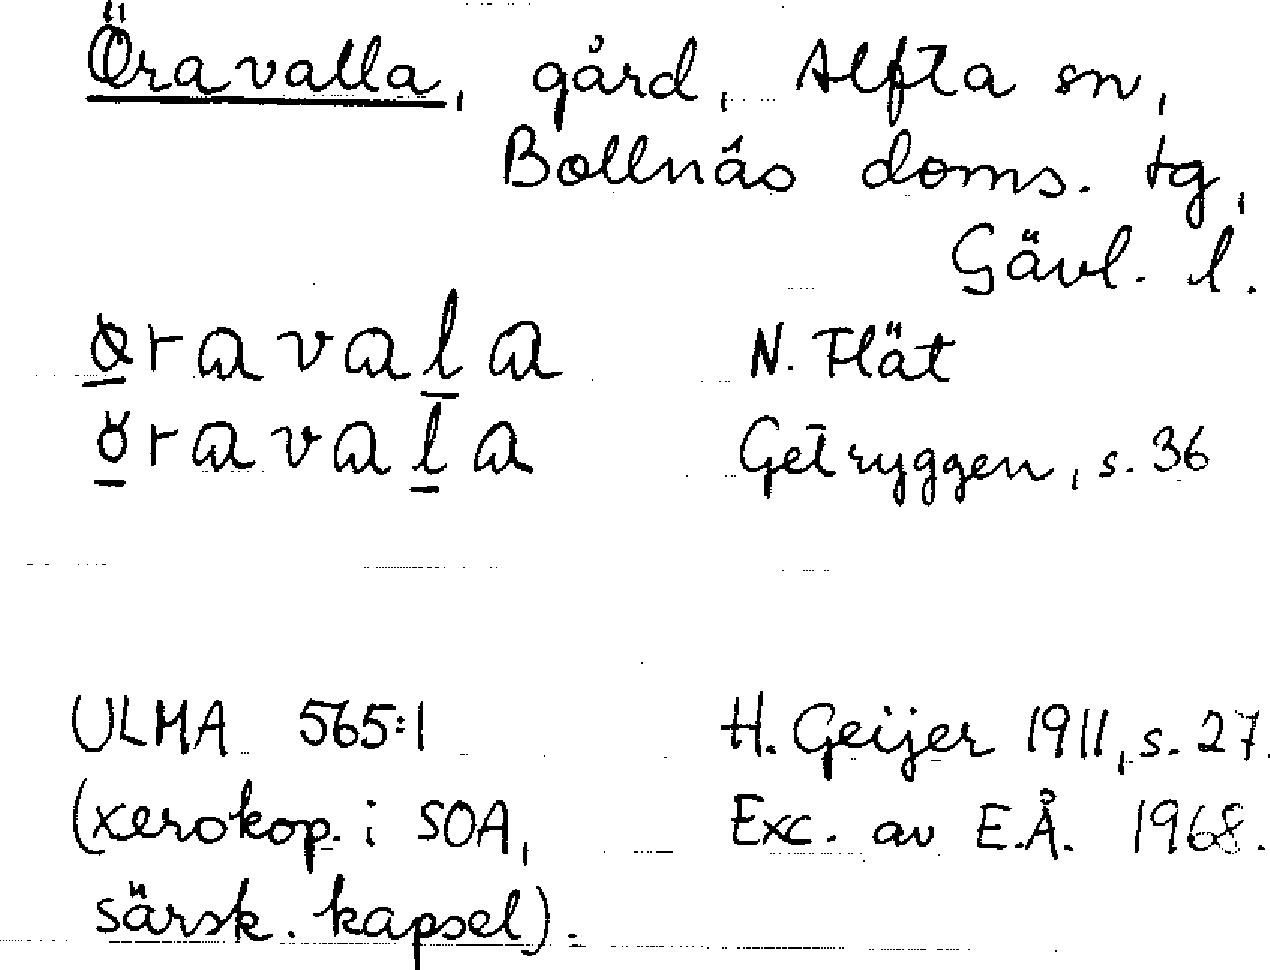 Öravalla, gård, Alfta sn,
Bollnäs doms. tg,
Gävl. l.
N. Flät
Getryggen, s. 36
ULMA 565:1 H. Geijer 1911, s. 27.
(xerokop. i SOA, Exc. av E.Å. 1968.
särsk. kapsel).